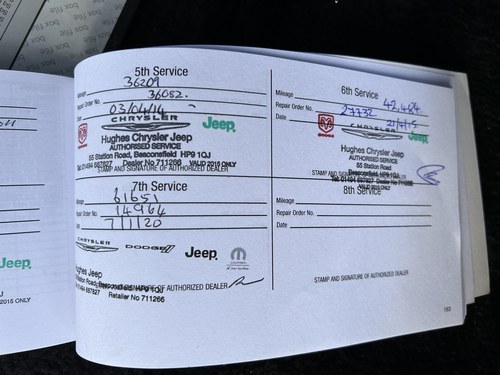 box file
5th Service
Mileage 36209
Repair Order No. 36052.
Date 03/04/14
CHRYSLER
Jeep
Hughes Chrysler Jeep
AUTHORISED SERVICE
55 Station Road, Beaconsfield HP9 1QJ
VALID 2015 ONLY
Tel: 01494 687827 Dealer No 711266
STAMP AND SIGNATURE OF AUTHORIZED DEALER
6th Service
Mileage 42,484
Repair Order No. 27732
Date 21/4/15
CHRYSLER
Jeep
Hughes Chrysler Jeep
AUTHORISED SERVICE
55 Station Road
Beaconsfield HP9 1QJ
Tel: 01494 687827 Dealer No 711266
STAMP
VALID 2015 ONLY
7th Service
Mileage 61651
Repair Order No. 14964
Date 7/1/20
CHRYSLER DODGE Jeep
Hughes Jeep
Station Road, Beaconsfield HP9 1QJ
687827
Retailer No 711266
SIGNATURE OF AUTHORIZED DEALER
8th Service
Mileage
Repair Order No.
Date
STAMP AND SIGNATURE OF AUTHORIZED DEALER
Jeep
2015 ONLY